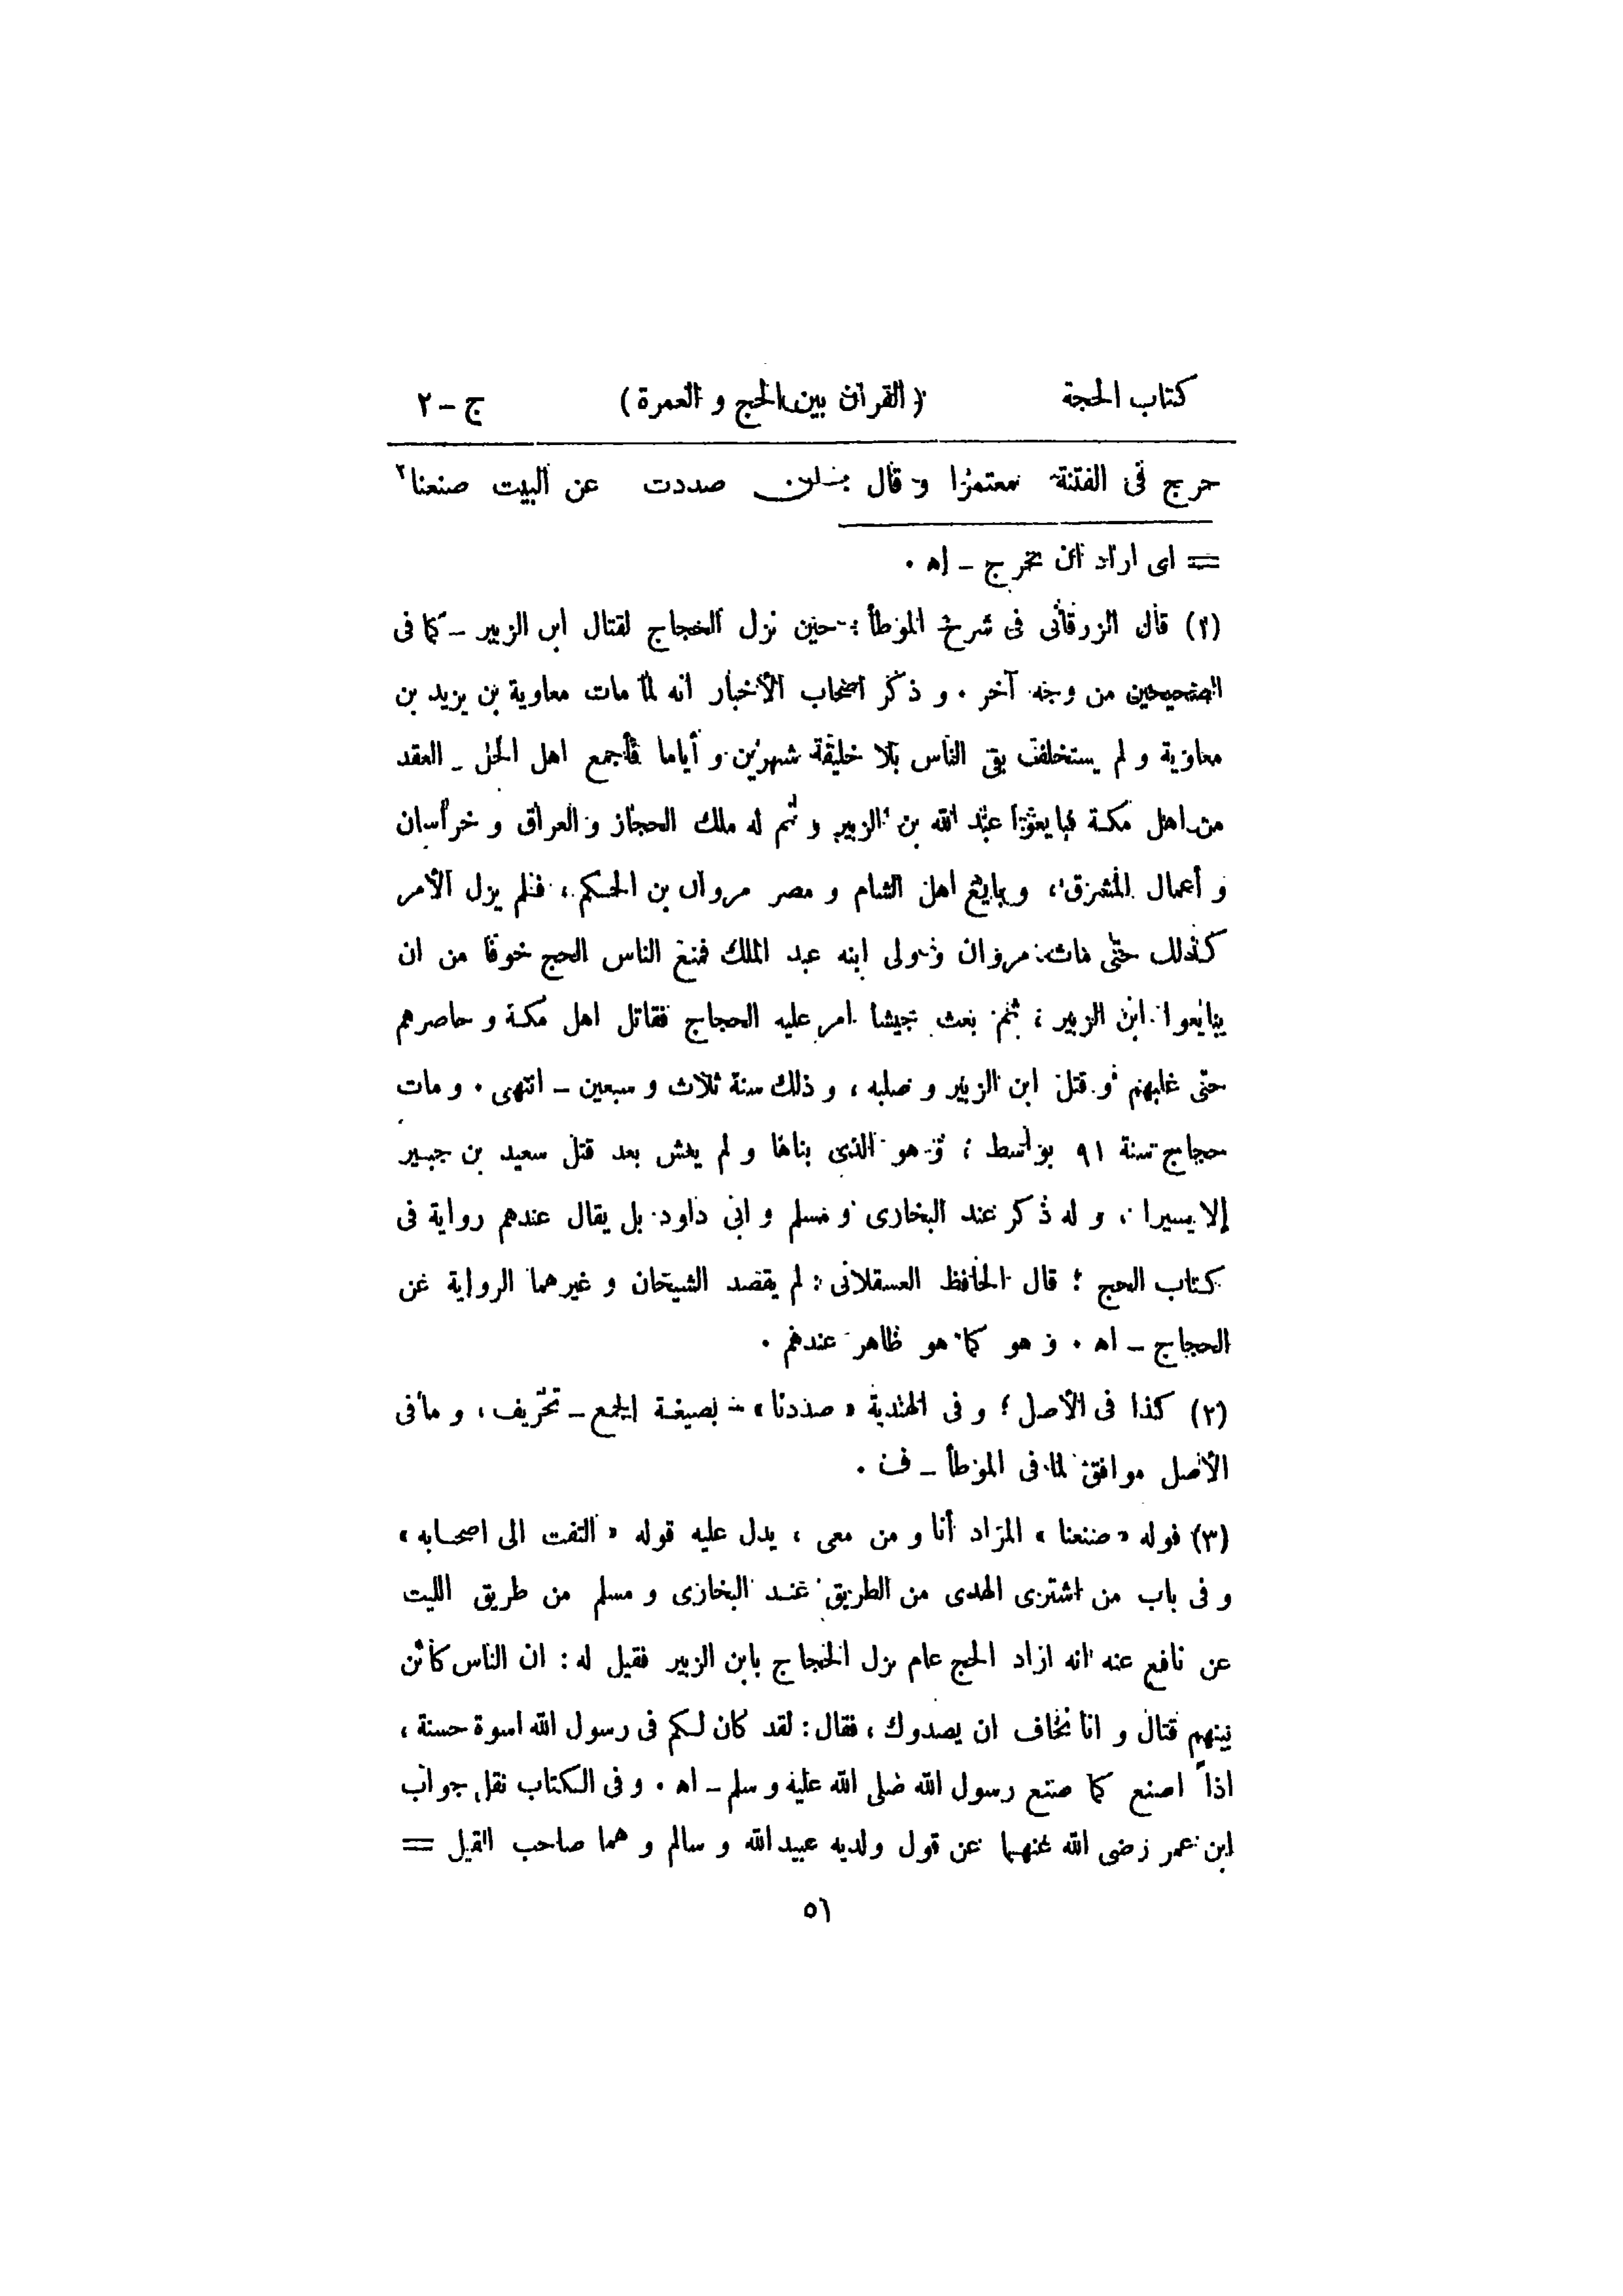 كتاب الحجة ( القران بين الحج و العمرة ) ج - ٢
خرج فى الفتنة معتمرا و قال صددت عن البيت صنعنا٣
= اى اراد ان يخرج - اه .
(١) قال الزرقانى فى شرح الموطأ : حين نزل الحجاج لقتال ابن الزبير - كما فى
الصحيحين من وجه آخر . و ذكر اصحاب الأخبار انه لما مات معاوية بن يزيد بن
معاوية و لم يستخلف بقى الناس بلا خليفة شهرين و أياما فأجمع اهل الحل - العقد
من اهل مكة فبايعوا عبد الله بن الزبير و تم له ملك الحجاز و العراق و خراسان
و أعمال المشرق ، و بايع اهل الشام و مصر مروان بن الحكم ، فلم يزل الأمر
كذلك حتى مات مروان و ولى ابنه عبد الملك فمنع الناس الحج خوفا من ان
يبايعوا ابن الزبير ؛ ثم بعث جيشا امر عليه الحجاج فقاتل اهل مكة و حاصرهم
حتى غلبهم و قتل ابن الزبير و صلبه ، و ذلك سنة ثلاث و سبعين - انتهى . و مات
حجاج سنة ٩١ بواسط ؛ و هو الذى بناها و لم يعش بعد قتل سعيد بن جبير
إلا يسيرا ، و له ذكر عند البخارى و مسلم و ابى داود بل يقال عندهم رواية فى
كتاب الحج ؛ قال الحافظ العسقلانى : لم يقصد الشيخان و غيرهما الرواية عن
الحجاج - اه . و هو كما هو ظاهر عندهم .
(٢) كذا فى الأصل ؛ و فى الهندية « صددنا » - بصيغة الجمع - تحريف ، و ما فى
الأصل موافق لما فى الموطأ - ف .
(٣) قوله « صنعنا » المراد أنا و من معى ، يدل عليه قوله « التفت الى اصحابه »
و فى باب من اشترى الهدى من الطريق عند البخارى و مسلم من طريق الليث
عن نافع عنه انه اراد الحج عام نزل الحجاج بابن الزبير فقيل له : ان الناس كائن
بينهم قتال و انا نخاف ان يصدوك ، فقال : لقد كان لكم فى رسول الله اسوة حسنة ،
اذاً اصنع كما صنع رسول الله صلى الله عليه و سلم - اه . و فى الكتاب نقل جواب
ابن عمر رضى الله عنهما عن قول ولديه عبيد الله و سالم و هما صاحب القيل =
٥٦